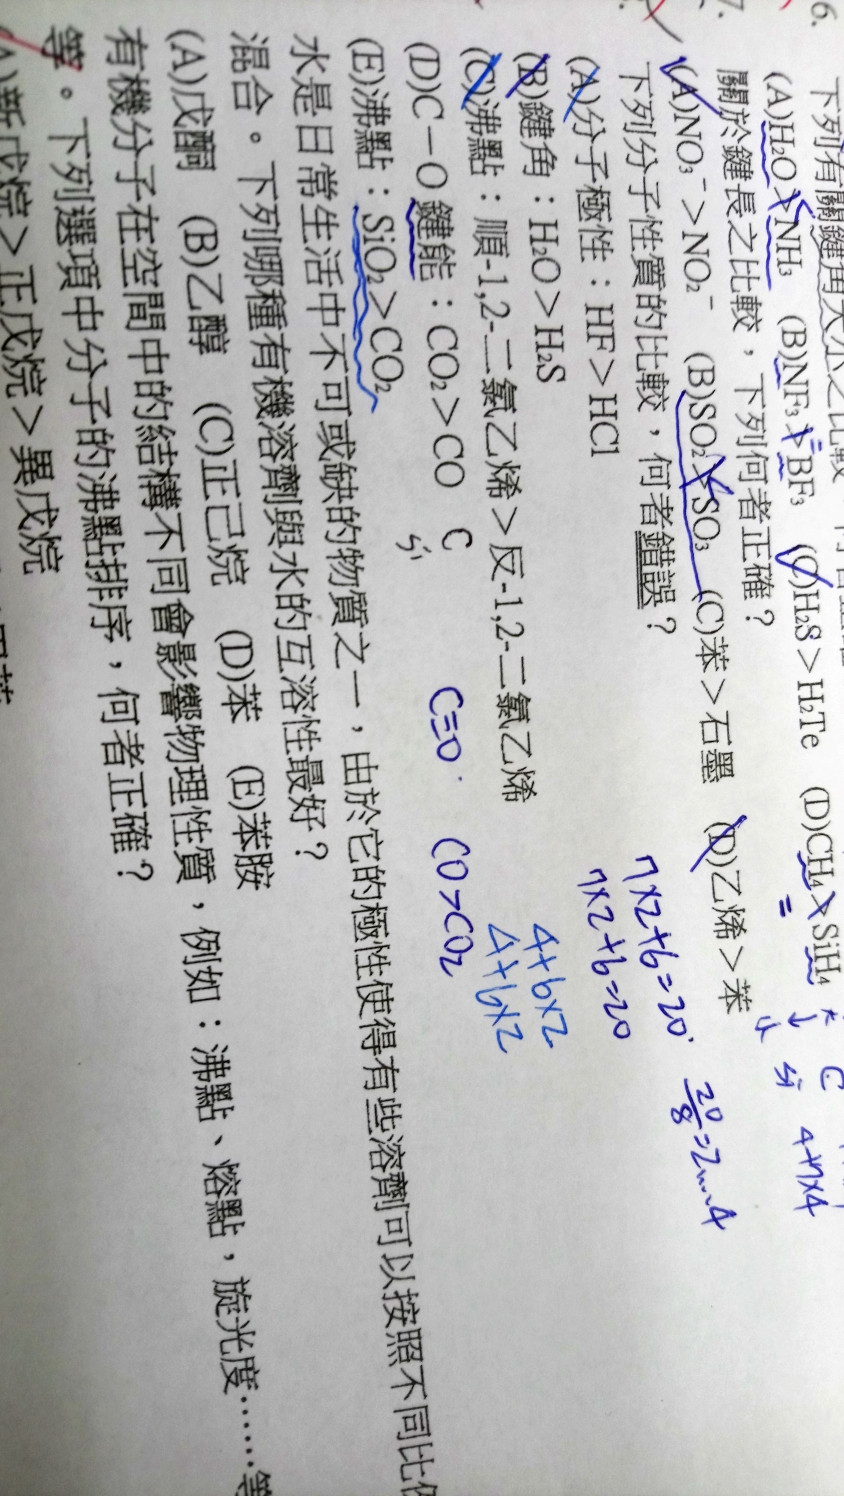 6. 下列有關鍵角大小之比較
(A)H₂O > NH₃ (B)NF₃ > BF₃ (C)H₂S > H₂Te (D)CH₄ > SiH₄
=
C
4+7×4
7. 關於鍵長之比較，下列何者正確？
(A)NO₃⁻ > NO₂⁻ (B)SO₂ > SO₃ (C)苯 > 石墨 (D)乙烯 > 苯
下列分子性質的比較，何者錯誤？
7×2+6=20
7×2+6=20
20/8=2...4
(A)分子極性：HF > HCl
(B)鍵角：H₂O > H₂S
4+6×2
4+6×2
(C)沸點：順-1,2-二氯乙烯 > 反-1,2-二氯乙烯
(D)C－O 鍵能：CO₂ > CO
C
Si
C≡O
CO>CO₂
(E)沸點：SiO₂ > CO₂
水是日常生活中不可或缺的物質之一，由於它的極性使得有些溶劑可以按照不同比
混合。下列哪種有機溶劑與水的互溶性最好？
(A)戊酮 (B)乙醇 (C)正己烷 (D)苯 (E)苯胺
有機分子在空間中的結構不同會影響物理性質，例如：沸點、熔點，旋光度……等
等。下列選項中分子的沸點排序，何者正確？
(A)新戊烷 > 正戊烷 > 異戊烷